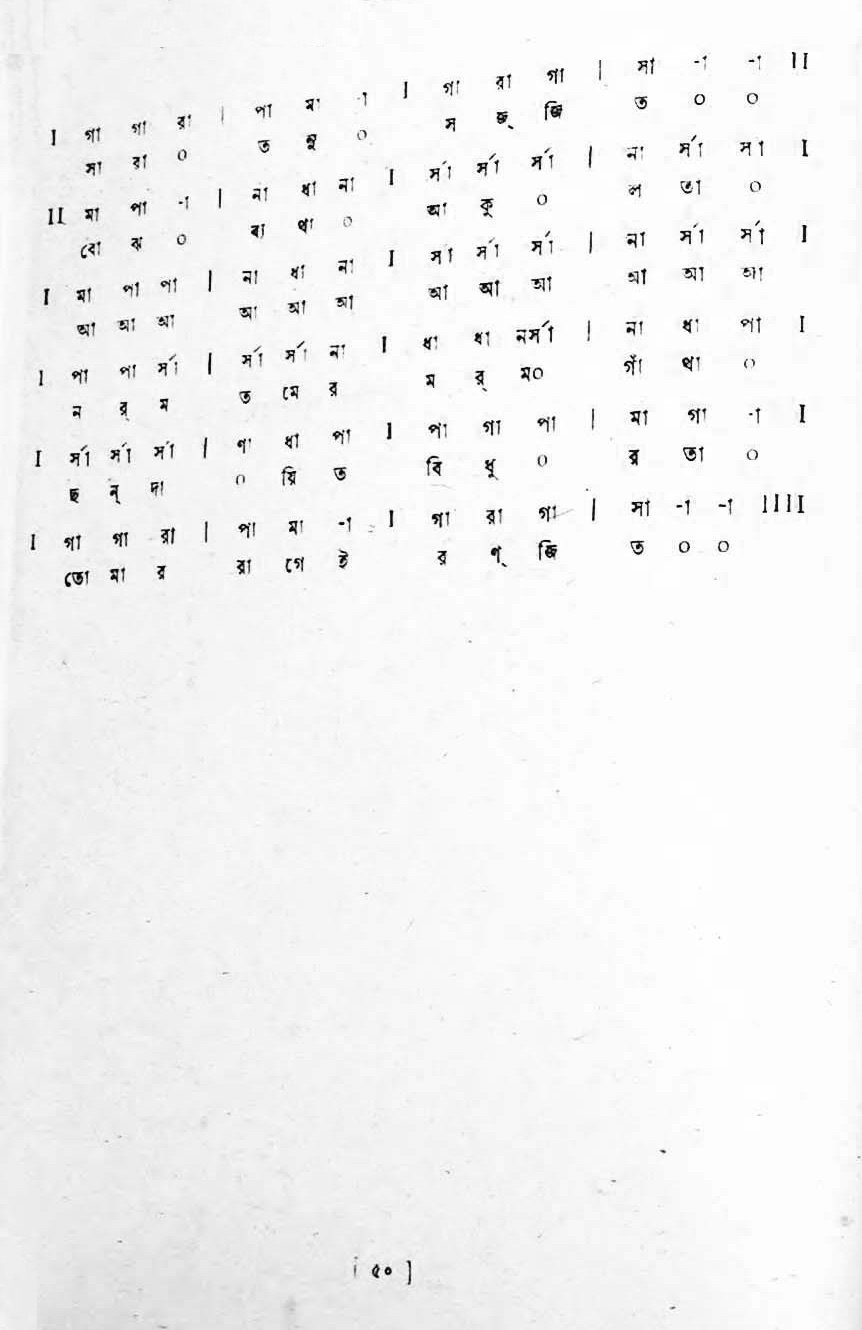 I গা গা রা | পা মা -া I গা রা গা | সা -া -া II
সা রা ০ ত নু ০ স জ্ জি ত ০ ০
II মা পা -া | না ধা না I র্সা র্সা র্সা | না র্সা সা I
বো ঝ ০ ব্য থা ০ আ কু ০ ল তা ০
I মা পা পা | না ধা না I র্সা র্সা র্সা | না র্সা র্সা I
আ আ আ আ আ আ আ আ আ আ আ আ
I পা পা র্সা | র্সা র্সা না I ধা ধা নর্সা | না ধা পা I
ন র্ ম ত মে র ম র্ ম০ গাঁ থা ০
I র্সা র্সা র্সা | ণা ধা পা I পা গা পা | মা গা -া I
ছ ন্ দা ০ য়ি ত বি ধু ০ র তা ০
I গা গা রা | পা মা -া I গা রা গা | সা -া -া IIII
তো মা র রা গে ই র ণ্ জি ত ০ ০
[ ৫০ ]